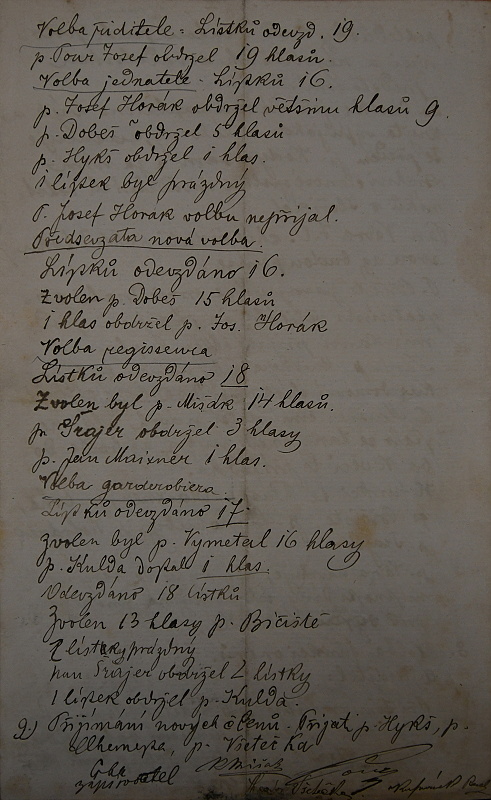 Volba řiditele = Lístků odevzd. 19.
p. Pour Josef obdržel 19 hlasů.
Volba jednatele - Lístků 16.
p. Josef Horák obdržel většinu hlasů 9.
p. Dobeš obdržel 5 hlasů
p. Hykš obdržel 1 hlas.
1 lístek byl prázdný
P. Josef Horák volbu nepřijal.
Předsevzata nová volba.
Lístků odevzdáno 16.
Zvolen p. Dobeš 15 hlasů
1 hlas obdržel p. Jos. Horák
Volba regisseura
Lístků odevzdáno 18
Zvolen byl p. Mišák 14 hlasů.
p. Šrajer obdržel 3 hlasy
p. Jan Maixner 1 hlas.
Volba garderobiera.
Lístků odevzdáno 17.
Zvolen byl p. Vymetal 16 hlasy
p. Kulda dostal 1 hlas.
Odevzdáno 18 lístků
Zvolen 13 hlasy p. Bičiště
2 lístky prázdný
pan Šrajer obdržel 2 lístky
1 lístek obdržel p. Kulda.
9.) Přijímání nových členů - Přijati p. Hykš, p.
p. Všetečka
zapisovatel